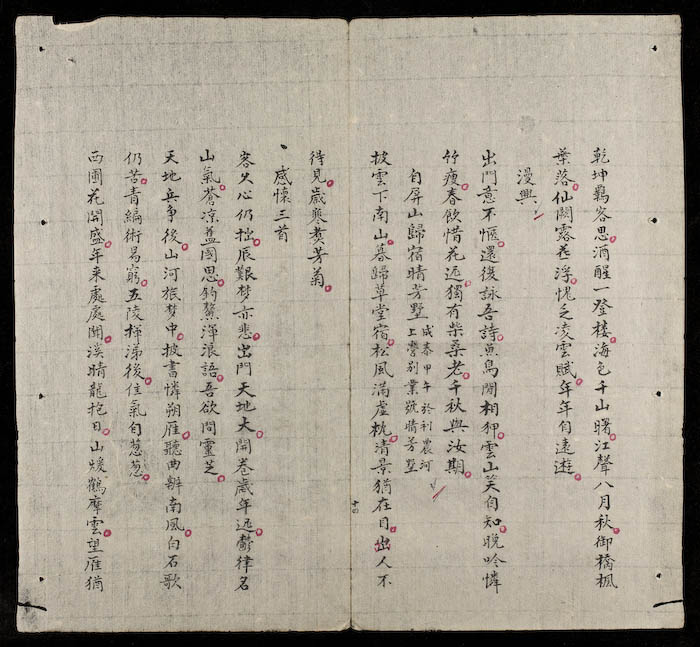 乾坤羈客思酒醒一登楼海色千山曙江聲八月秋御橋楓
葉落仙闕露花浮愧乏凌雲賦年年自遠遊
漫興
出門意不愜還復詠吾詩魚鳥閒相狎雲山笑自知晚吟憐
竹瘦春飲惜花遲獨有柴桑老千秋與汝期
自屏山歸宿晴芳墅成泰甲午於利農河上營别業號晴芳墅
披雲下南山暮歸草堂宿松風滿虛枕清景猶在目幽人不
十四
待見歲寒煑芳菊
感懷三首
客久心仍拙辰艱梦亦悲出門天地大開卷歲年遲鬱律名
山氣蒼凉益國思釣鰲渾浪語吾欲問靈芝
天地兵争後山河旅梦中披書憐朔雁聽曲辨南風白石歌
仍苦青編術易窮五陵揮涕後佳氣自葱葱
西圃花開盛年来處處聞溪晴龍抱日山煖鶴摩雲望雁猶